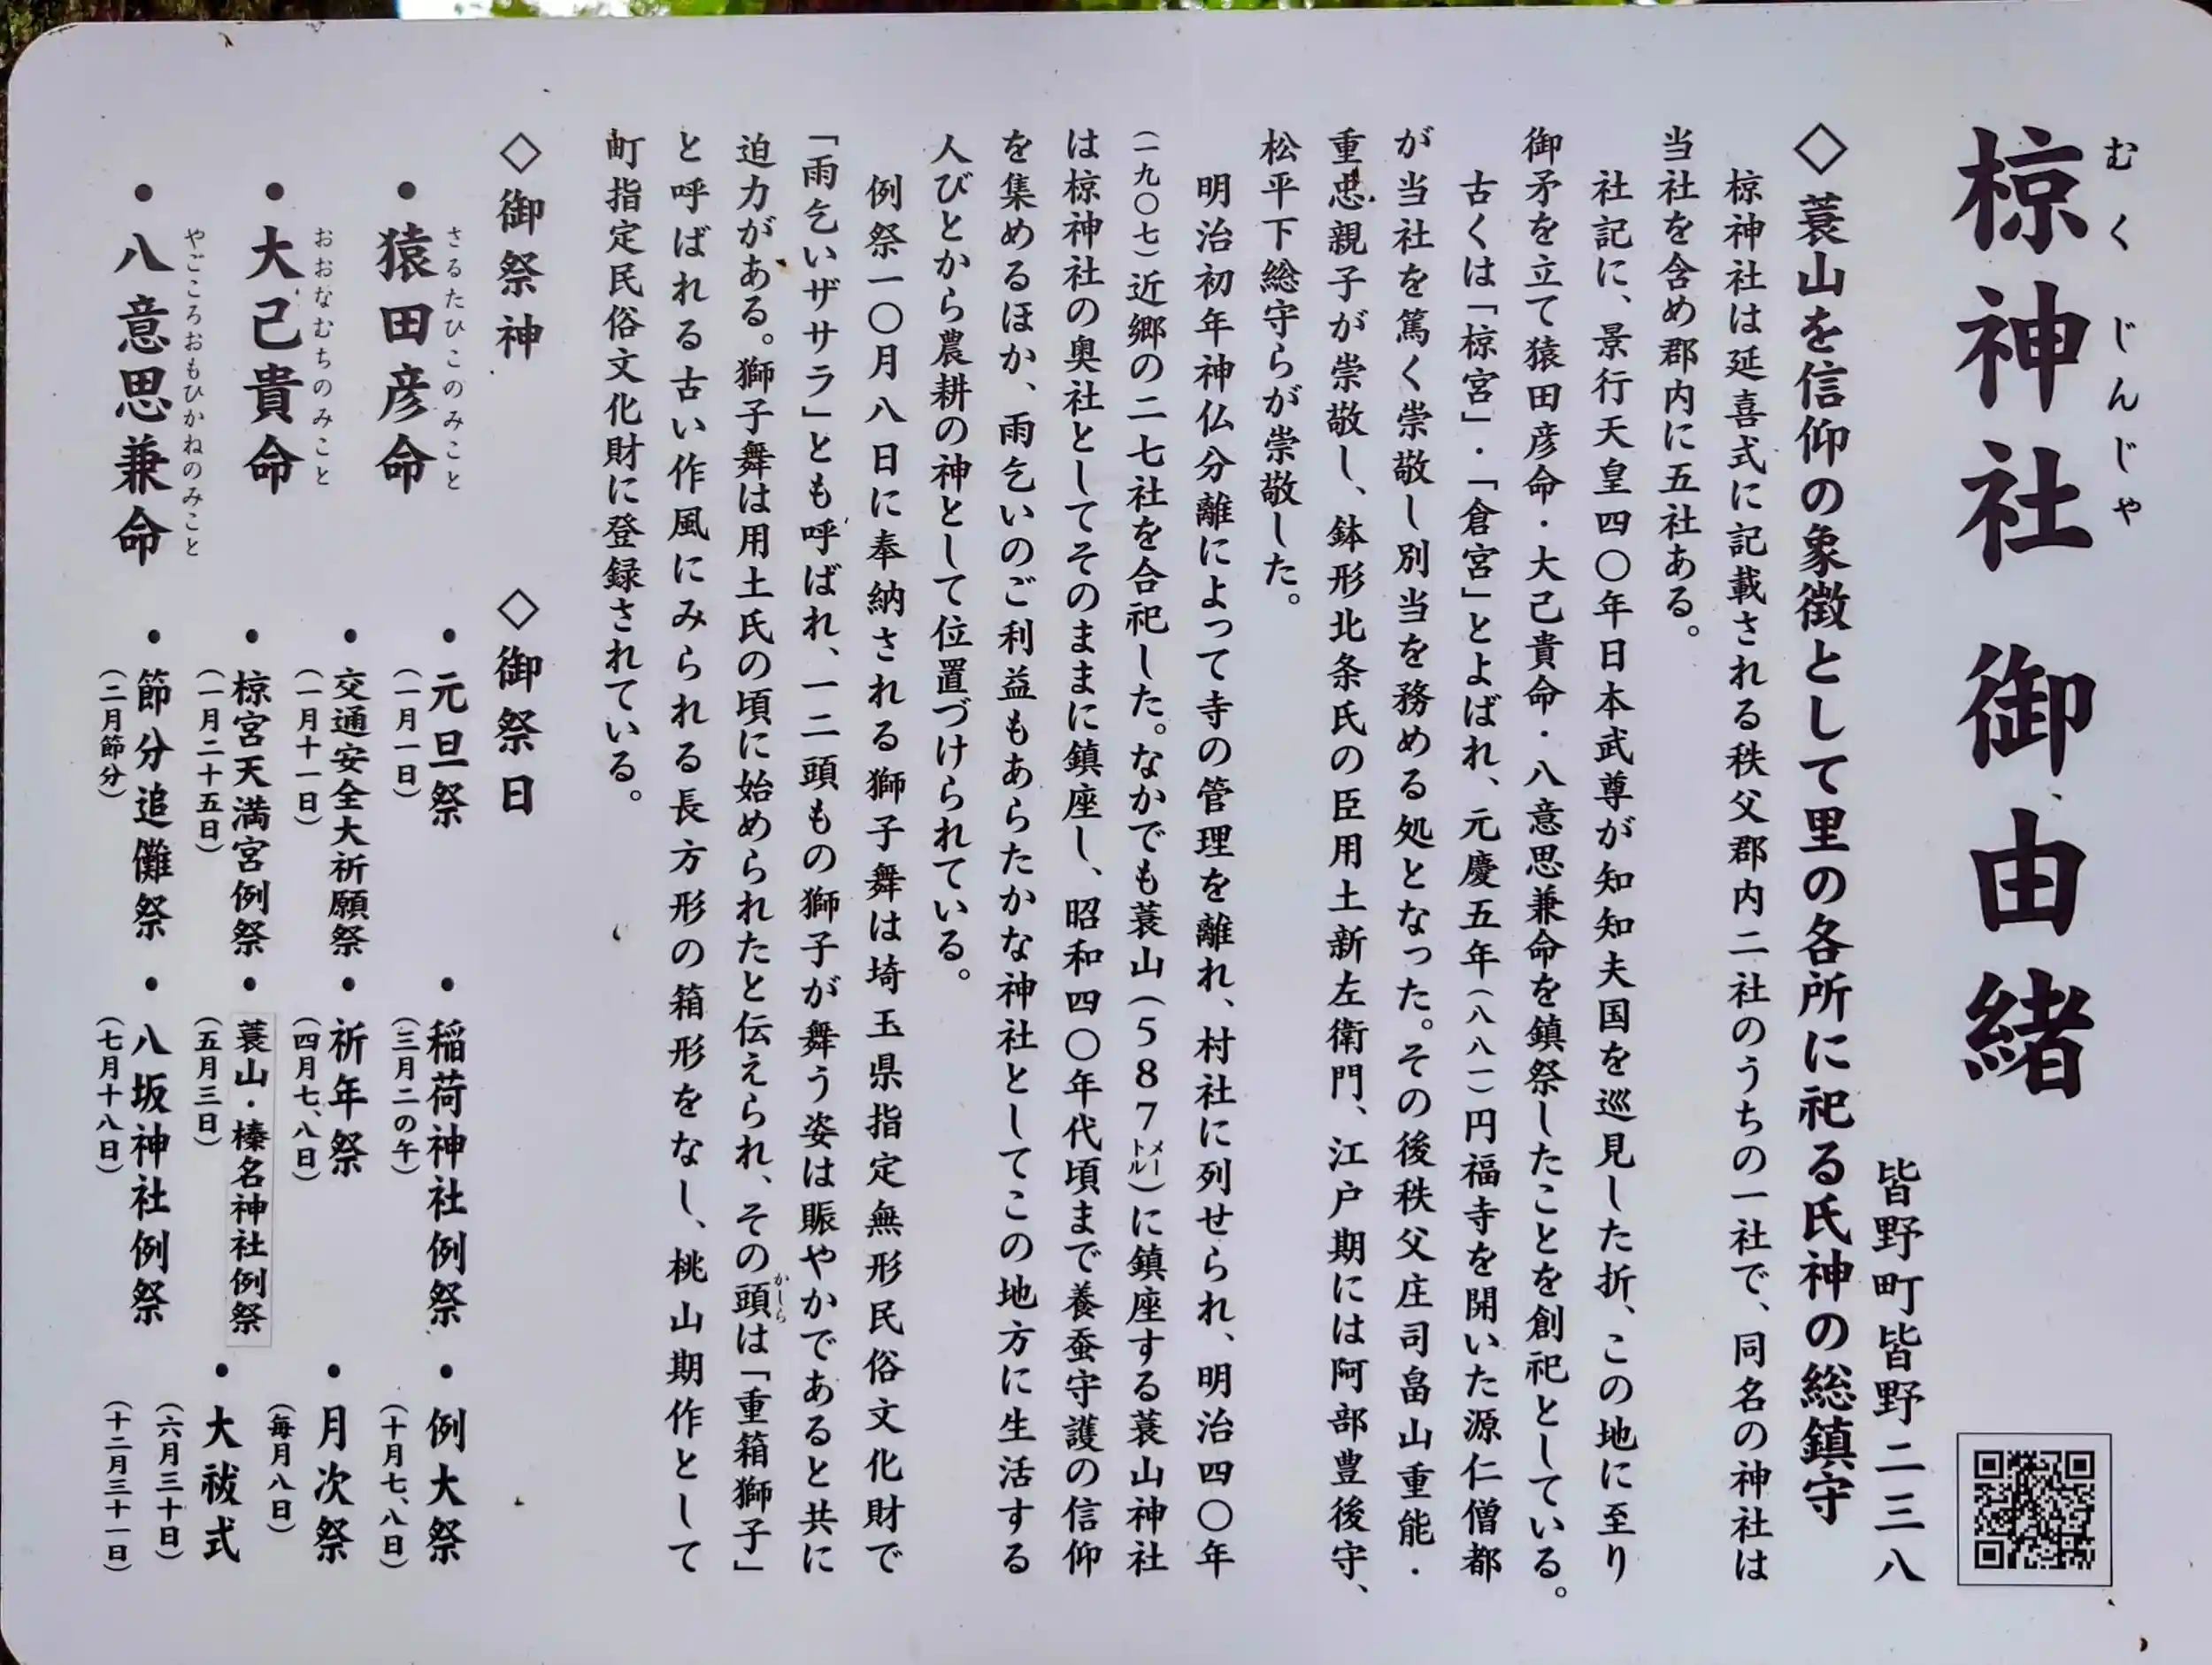 むくじんじゃ
椋神社 御由緒
皆野町皆野二三八
◇蓑山を信仰の象徴として里の各所に祀る氏神の総鎮守
椋神社は延喜式に記載される秩父郡内二社のうちの一社で、同名の神社は
当社を含め郡内に五社ある。
社記に、景行天皇四〇年日本武尊が知知夫国を巡見した折、この地に至り
御矛を立て猿田彦命・大己貴命・八意思兼命を鎮祭したことを創祀としている。
古くは「椋宮」・「倉宮」とよばれ、元慶五年(八八一)円福寺を開いた源仁僧都
が当社を篤く崇敬し別当を務める処となった。その後秩父庄司畠山重能・
重忠親子が崇敬し、鉢形北条氏の臣用土新左衛門、江戸期には阿部豊後守、
松平下総守らが崇敬した。
明治初年神仏分離によって寺の管理を離れ、村社に列せられ、明治四〇年
(一九〇七)近郷の二七社を合祀した。なかでも蓑山(587メートル)に鎮座する蓑山神社
は椋神社の奥社としてそのままに鎮座し、昭和四〇年代頃まで養蚕守護の信仰
を集めるほか、雨乞いのご利益もあらたかな神社としてこの地方に生活する
人びとから農耕の神として位置づけられている。
例祭一〇月八日に奉納される獅子舞は埼玉県指定無形民俗文化財で
「雨乞いザサラ」とも呼ばれ、一二頭もの獅子が舞う姿は賑やかであると共に
迫力がある。獅子舞は用土氏の頃に始められたと伝えられ、その頭は「重箱獅子」
かしら
と呼ばれる古い作風にみられる長方形の箱形をなし、桃山期作として
町指定民俗文化財に登録されている。
◇御祭神
さるたひこのみこと
・猿田彦命
おおなむちのみこと
・大己貴命
やごころおもひかねのみこと
・八意思兼命
◇御祭日
・元旦祭
(一月一日)
・交通安全大祈願祭
(一月十一日)
・椋宮天満宮例祭
(一月二十五日)
・節分追儺祭
(二月節分)
・稲荷神社例祭
(三月二の午)
・祈年祭
(四月七、八日)
・蓑山・榛名神社例祭
(五月三日)
・八坂神社例祭
(七月十八日)
・例大祭
(十月七、八日)
・月次祭
(毎月八日)
・大祓式
(六月三十日)
(十二月三十一日)